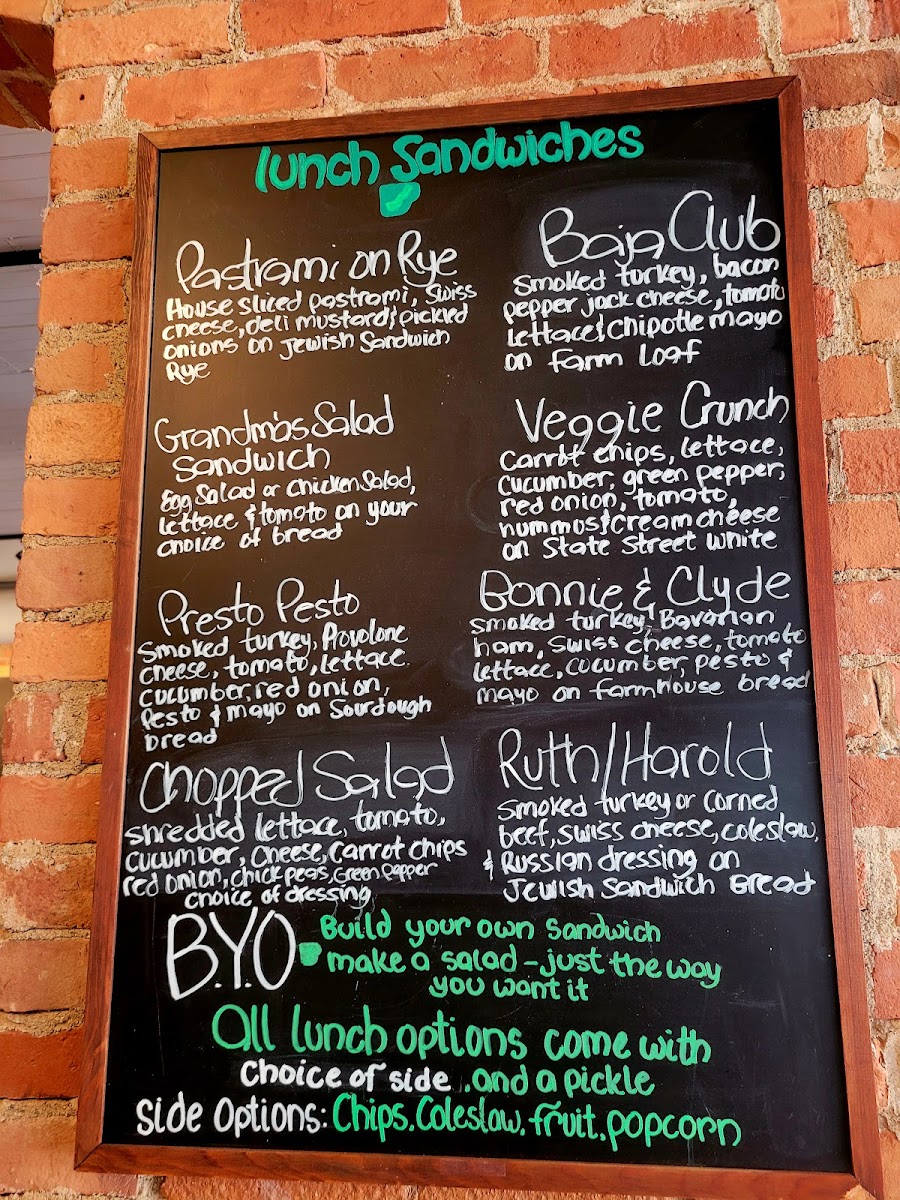 lunch Sandwiches
Pastrami on Rye
House sliced pastrami, Swiss
cheese, deli mustard & pickled
onions on Jewish Sandwich
Rye
Baja Club
Smoked turkey, bacon
pepper jack cheese, tomato
lettace & Chipotle mayo
on farm Loaf
Grandma's Salad
Sandwich
Egg Salad or Chicken Salad,
lettace & tomato on your
choice of bread
Veggie Crunch
Carrot chips, lettace,
cucumber, green pepper,
red onion, tomato,
hummus & cream cheese
on State Street White
Presto Pesto
Smoked turkey, Provolone
cheese, tomato, lettace.
cucumber, red onion,
Pesto & mayo on Sourdough
bread
Bonnie & Clyde
Smoked turkey, Bavarian
ham, Swiss cheese, tomato
lettace, cucumber, pesto &
mayo on farmhouse bread
Chopped Salad
Shredded lettace, tomato,
cucumber, Cheese, Carrot chips
red onion, chick peas, Green Pepper
choice of dressing
Ruth/Harold
Smoked turkey or Corned
beef, swiss cheese, coleslaw,
& Russian dressing on
Jewish Sandwich Bread
B.Y.O
Build your own sandwich
make a salad - just the way
you want it
All lunch options come with
Choice of side , and a pickle
Side Options: Chips. Coleslaw. fruit. popcorn